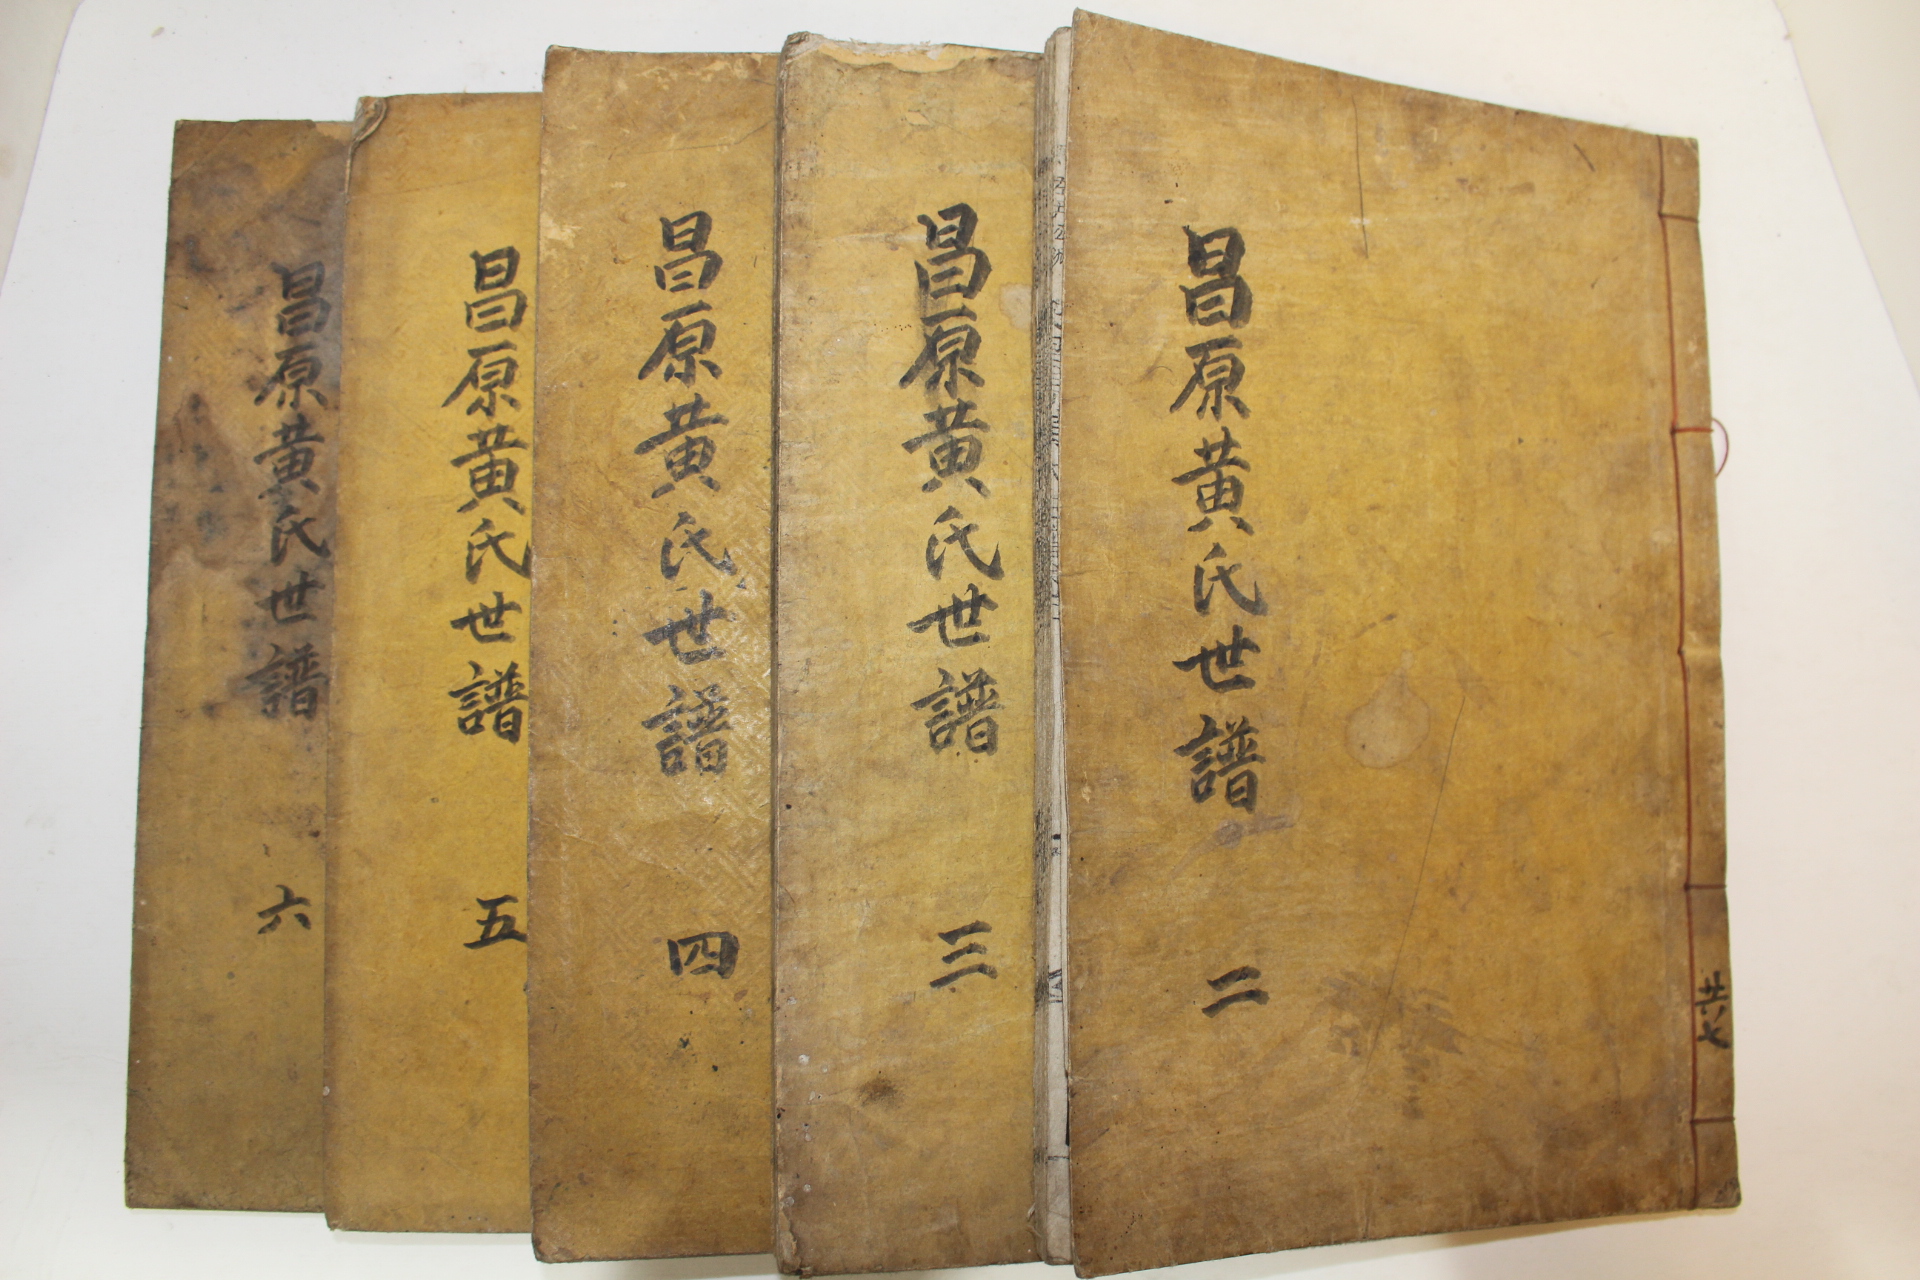 昌原黃氏世譜 二
共七
昌原黃氏世譜 三
昌原黃氏世譜 四
昌原黃氏世譜 五
昌原黃氏世譜 六